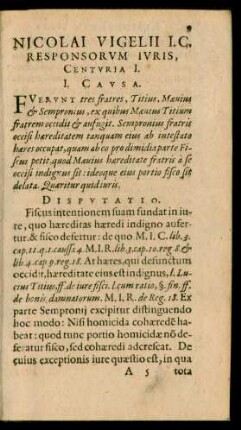 NICOLAI VIGELII I.C.
RESPONSORVM IVRIS,
CENTVRIA I.
I. CAVSA.
FVERVNT tres fratres, Titius, Mauius
& Sempronius, ex quibus Mauius Titium
fratrem occidit & aufugit. Sempronius fratris
occisi hæreditatem tanquam eius ab intestato
hæres occupat, quam ab eo pro dimidia parte Fi-
scus petit, quod Mauius hæreditate fratris à se
occisi indignus sit: ideoque eius portio fisco sit
delata. Quæritur quid iuris.
DISPVTATIO.
Fiscus intentionem suam fundat in iu-
re, quo hæreditas hæredi indigno aufer-
tur & fisco defertur: de quo M.I.C. lib. 4.
cap. 11. q. 1. caussa 4. M.I.R. lib. 3. cap. 10. reg. 8. &
lib. 4. cap. 9. reg. 18. At hæres, qui defunctum
occidit, hæreditate eius est indignus, l. Lu-
cius Titius, ff. de iure fisci. l. cum ratio, §. fin. ff.
de bonis damnatorum, M.I.R. de Reg. 18. Ex
parte Sempronij excipitur distinguendo
hoc modo: Nisi homicida cohæredē ha-
beat: quod tunc portio homicidæ nō de-
feratur fisco, sed cohæredi adcrescat. De
cuius exceptionis iure quæstio est, in qua
A 5 tota